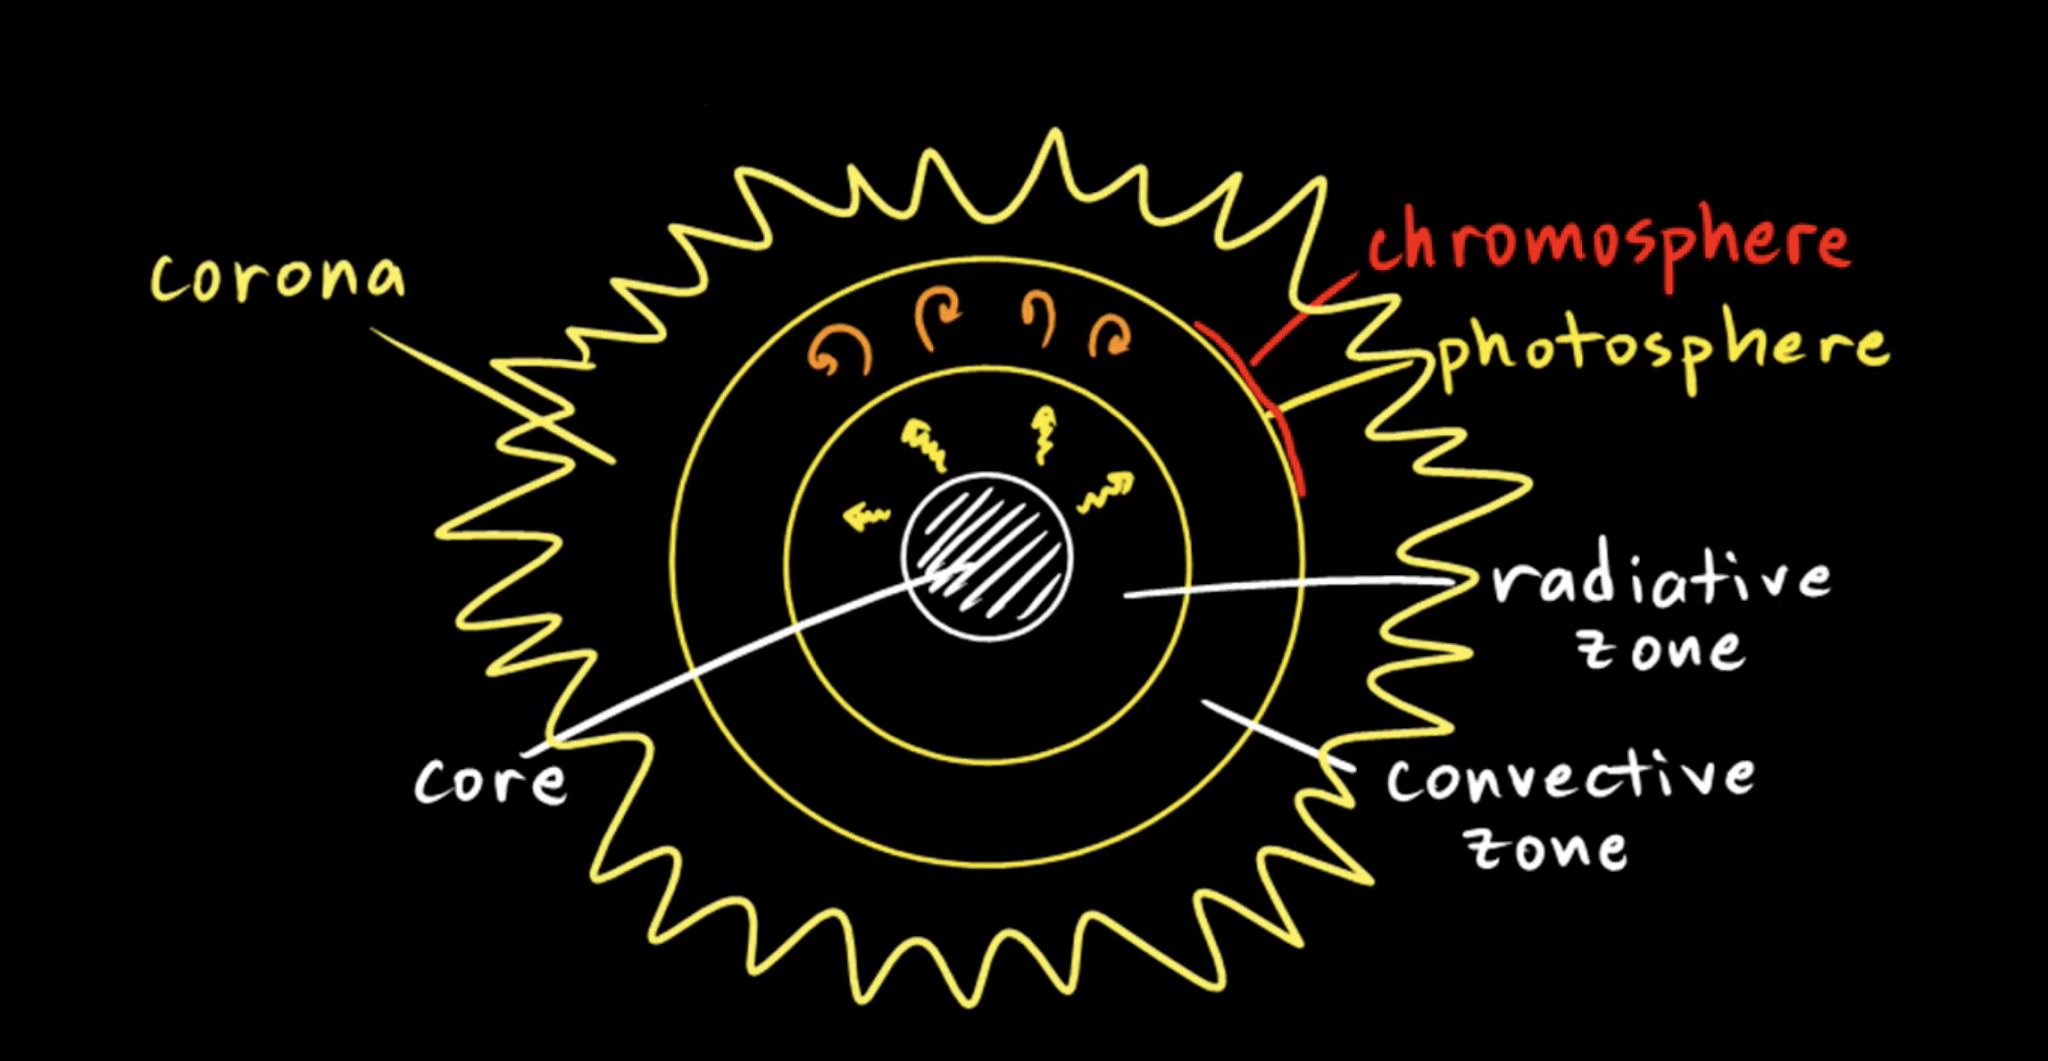 chromosphere
corona
photosphere
radiative
zone
core
convective
zone